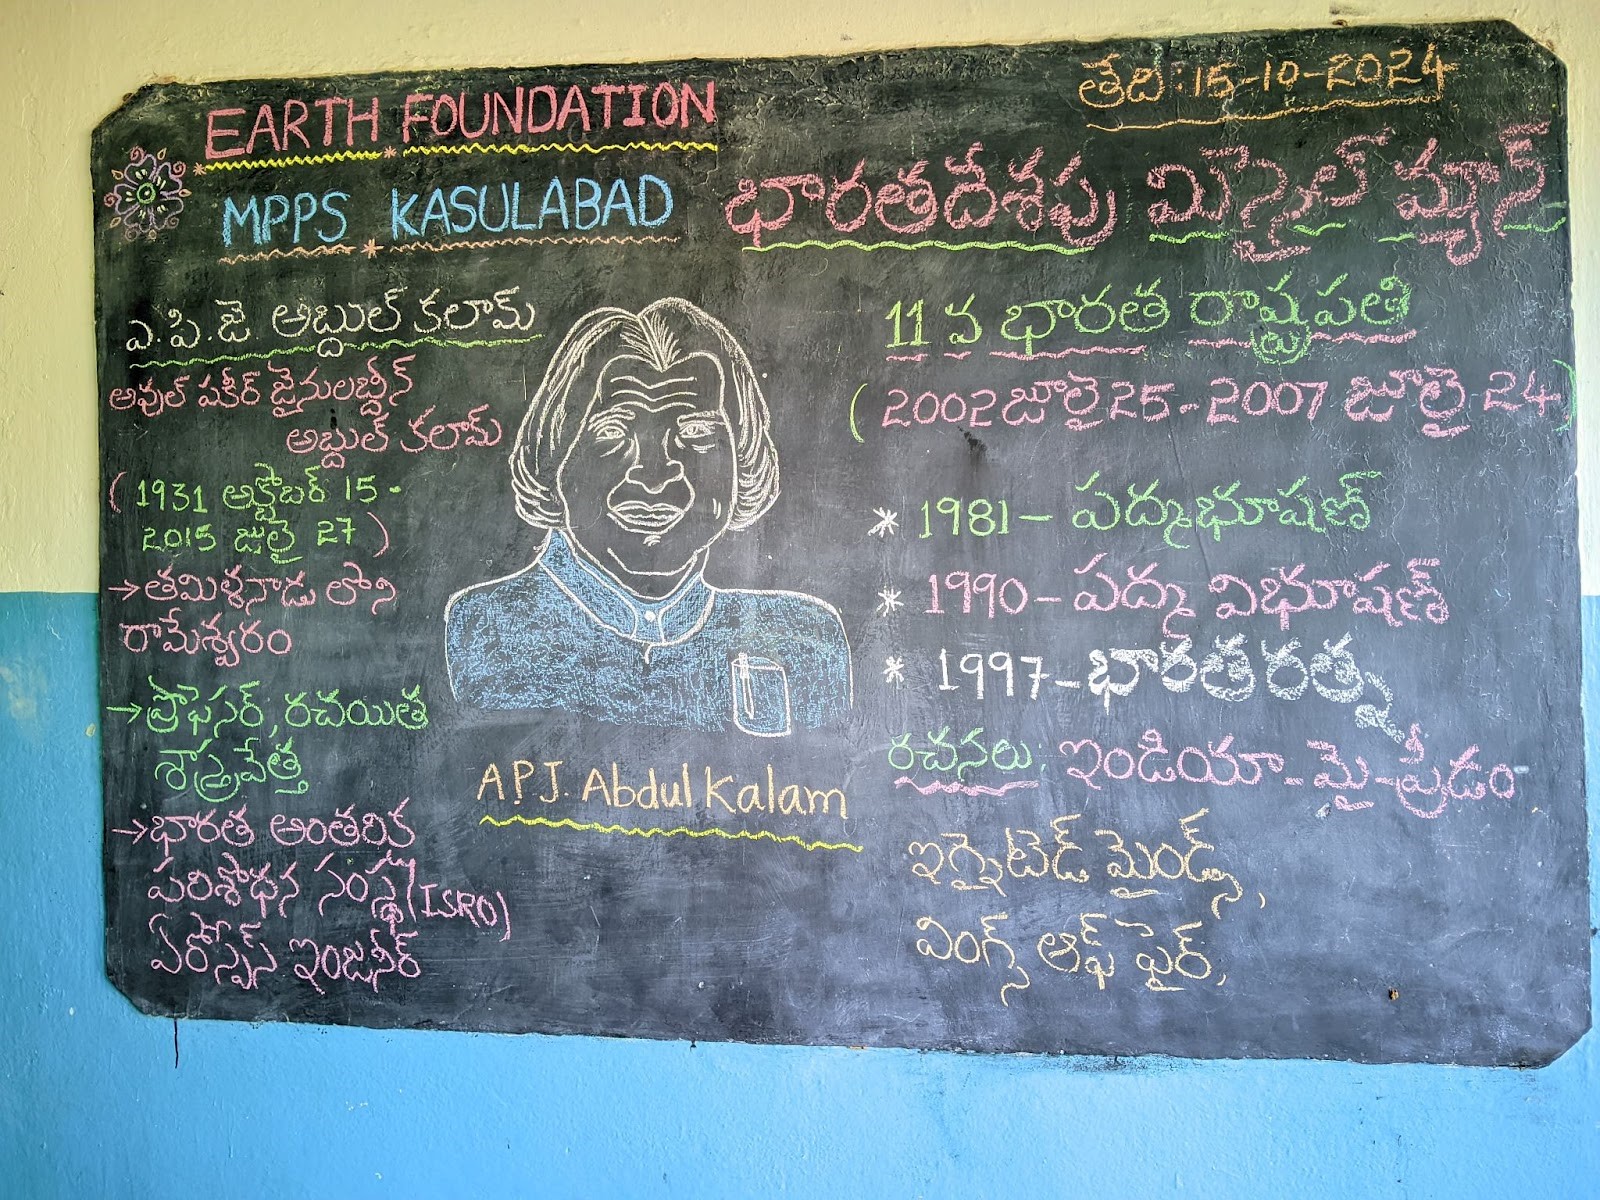 తేది : 15-10-2024
EARTH FOUNDATION
MPPS KASULABAD
భారతదేశపు మిస్సైల్ మ్యాన్
ఎ.పి.జె. అబ్దుల్ కలామ్
అవుల్ పకీర్ జైనులబ్దీన్
అబ్దుల్ కలామ్
(1931 అక్టోబర్ 15 -
2015 జులై 27)
→తమిళనాడు లోని
రామేశ్వరం
→ప్రొఫెసర్, రచయిత
శాస్త్రవేత్త
→భారత అంతరిక్ష
పరిశోధన సంస్థ (ISRO)
ఏరోస్పేస్ ఇంజనీర్
A.P.J. Abdul Kalam
11 వ భారత రాష్ట్రపతి
(2002 జూలై 25 - 2007 జూలై 24)
* 1981 - పద్మభూషణ్
* 1990 - పద్మ విభూషణ్
* 1997 - భారతరత్న
రచనలు: ఇండియా - మై - ప్రీడం,
ఇగ్నైటెడ్ మైండ్స్,
వింగ్స్ ఆఫ్ ఫైర్,